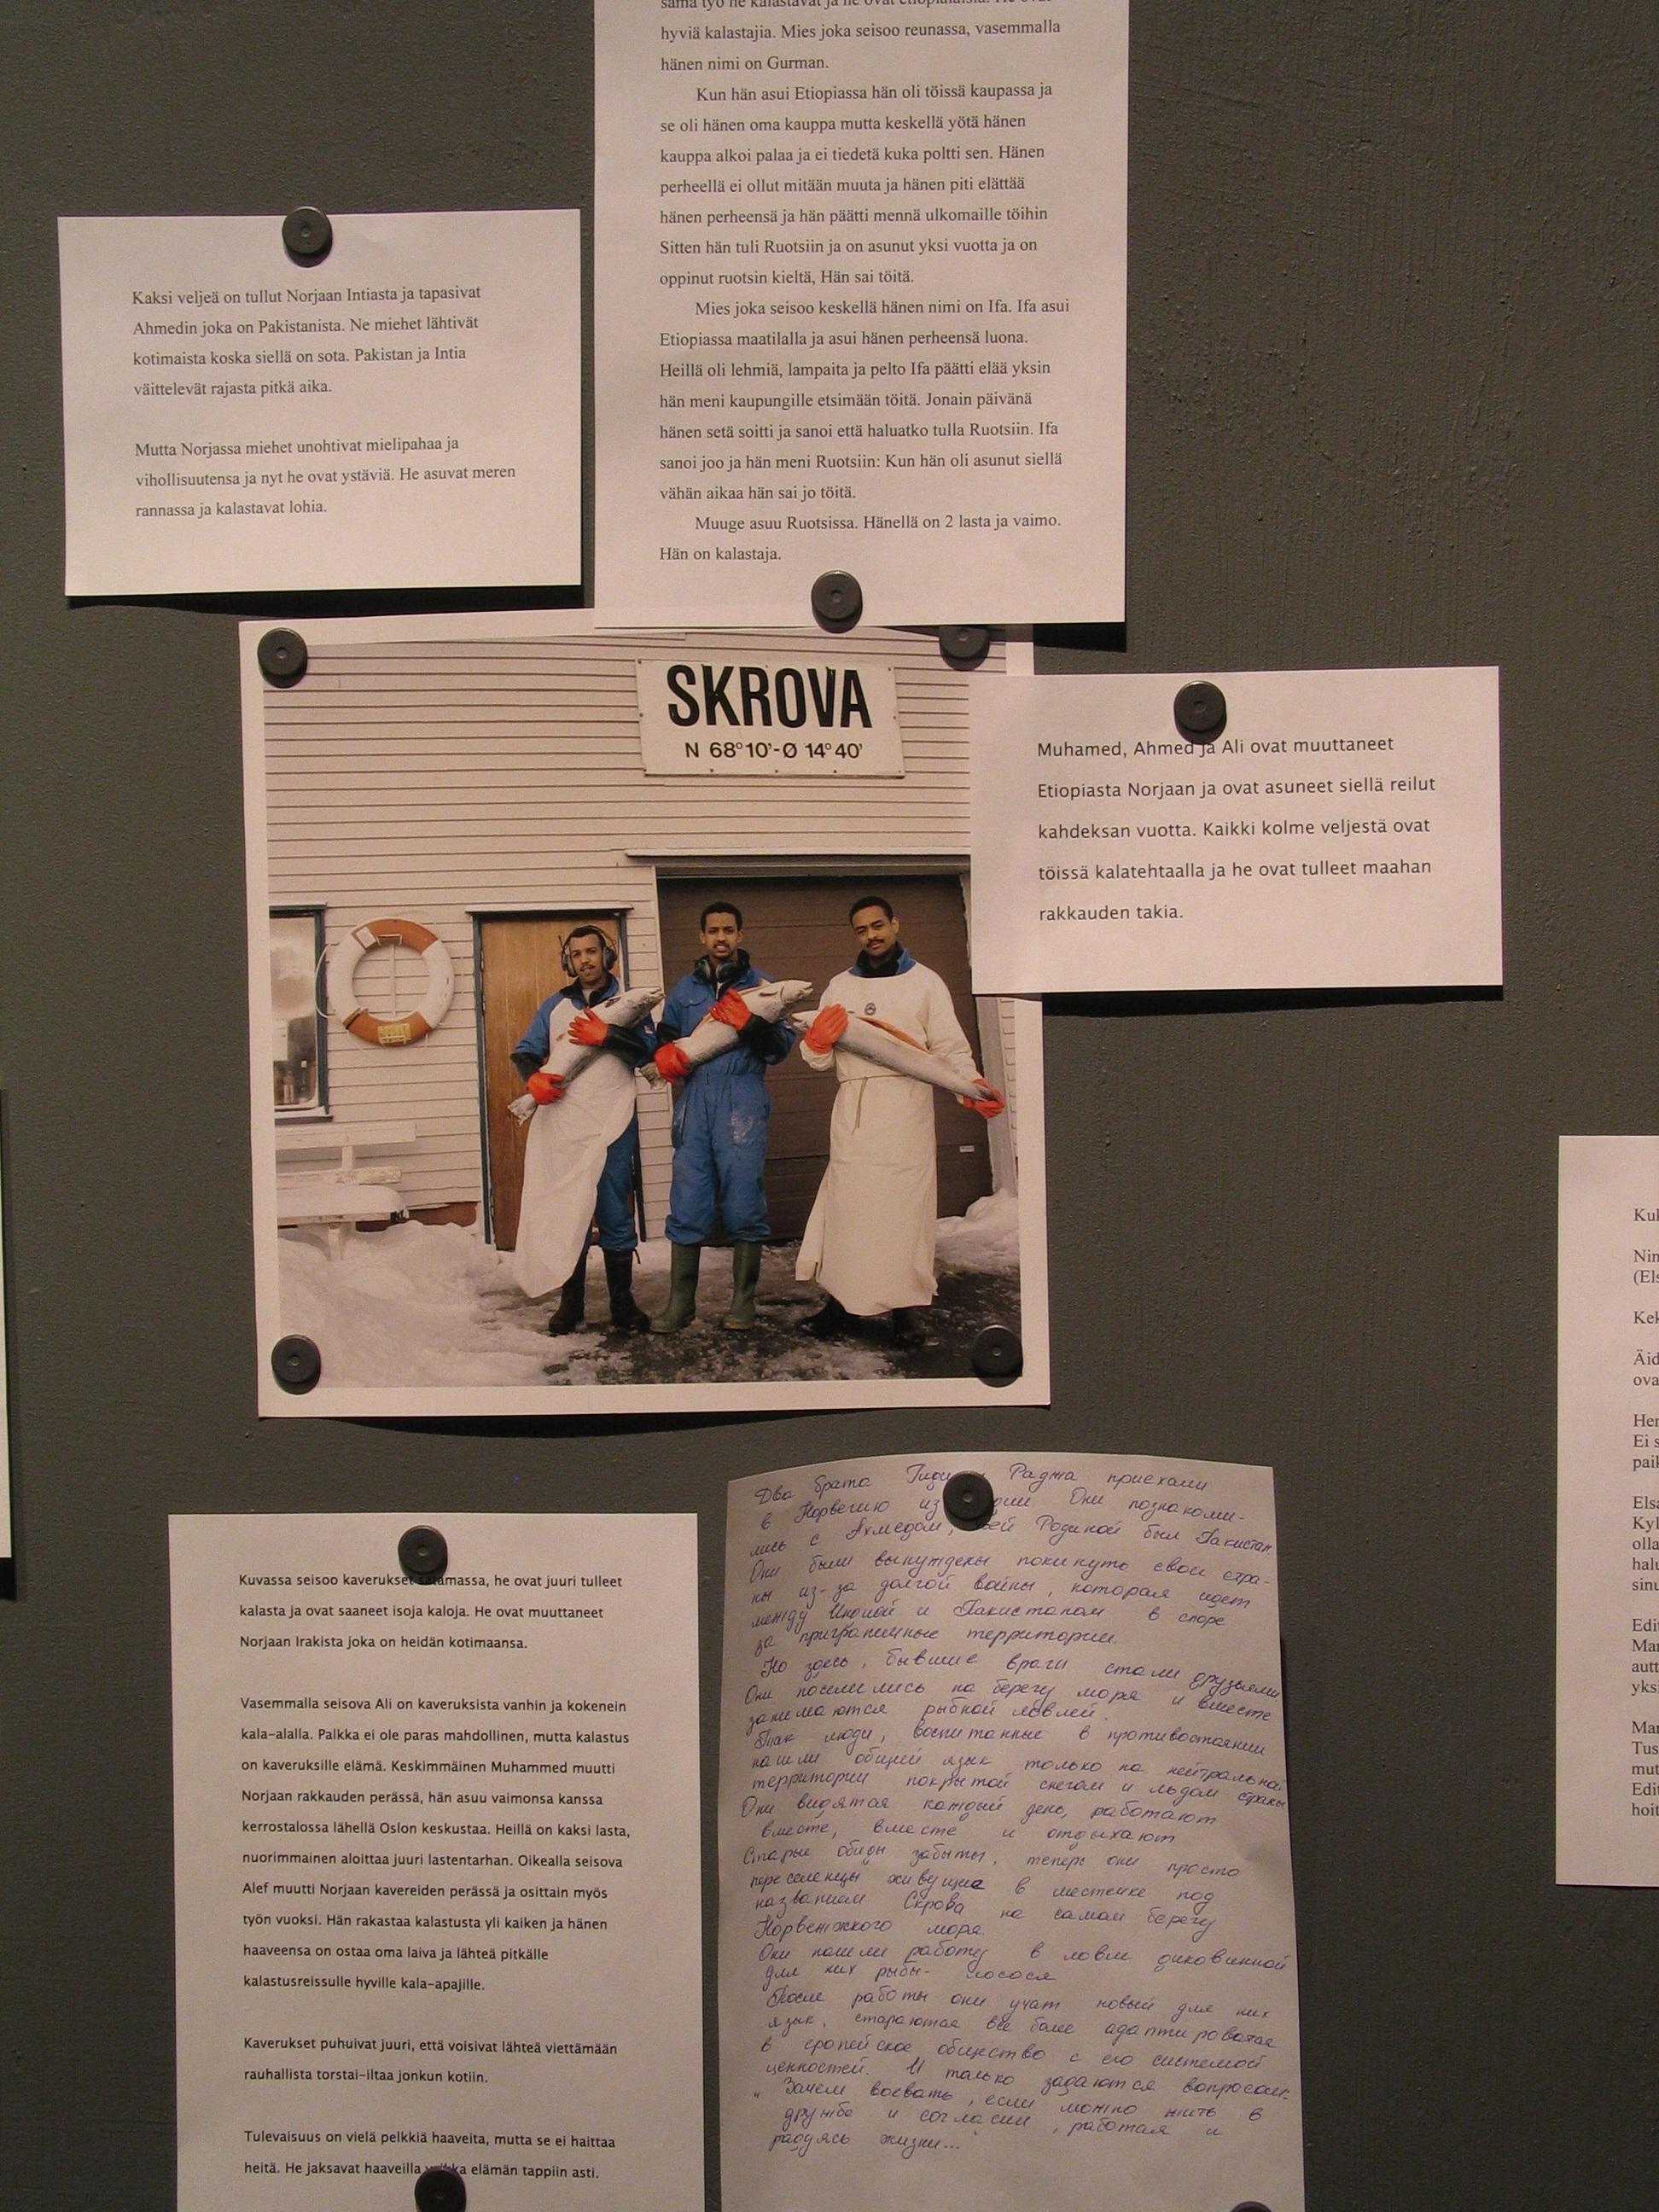 sama työ he kalastavat ja he ovat etiopialaisia. He ovat
hyviä kalastajia. Mies joka seisoo reunassa, vasemmalla
hänen nimi on Gurman.
Kun hän asui Etiopiassa hän oli töissä kaupassa ja
se oli hänen oma kauppa mutta keskellä yötä hänen
kauppa alkoi palaa ja ei tiedetä kuka poltti sen. Hänen
perheellä ei ollut mitään muuta ja hänen piti elättää
hänen perheensä ja hän päätti mennä ulkomaille töihin
Sitten hän tuli Ruotsiin ja on asunut yksi vuotta ja on
oppinut ruotsin kieltä, Hän sai töitä.
Mies joka seisoo keskellä hänen nimi on Ifa. Ifa asui
Etiopiassa maatilalla ja asui hänen perheensä luona.
Heillä oli lehmiä, lampaita ja pelto Ifa päätti elää yksin
hän meni kaupungille etsimään töitä. Jonain päivänä
hänen setä soitti ja sanoi että haluatko tulla Ruotsiin. Ifa
sanoi joo ja hän meni Ruotsiin: Kun hän oli asunut siellä
vähän aikaa hän sai jo töitä.
Muuge asuu Ruotsissa. Hänellä on 2 lasta ja vaimo.
Hän on kalastaja.
Kaksi veljeä on tullut Norjaan Intiasta ja tapasivat
Ahmedin joka on Pakistanista. Ne miehet lähtivät
kotimaista koska siellä on sota. Pakistan ja Intia
väittelevät rajasta pitkä aika.
Mutta Norjassa miehet unohtivat mielipahaa ja
vihollisuutensa ja nyt he ovat ystäviä. He asuvat meren
rannassa ja kalastavat lohia.
SKROVA
N 68°10'-Ø 14°40'
Muhamed, Ahmed ja Ali ovat muuttaneet
Etiopiasta Norjaan ja ovat asuneet siellä reilut
kahdeksan vuotta. Kaikki kolme veljestä ovat
töissä kalatehtaalla ja he ovat tulleet maahan
rakkauden takia.
Kuvassa seisoo kaverukset satamassa, he ovat juuri tulleet
kalasta ja ovat saaneet isoja kaloja. He ovat muuttaneet
Norjaan Irakista joka on heidän kotimaansa.
Vasemmalla seisova Ali on kaveruksista vanhin ja kokenein
kala-alalla. Palkka ei ole paras mahdollinen, mutta kalastus
on kaveruksille elämä. Keskimmäinen Muhammed muutti
Norjaan rakkauden perässä, hän asuu vaimonsa kanssa
kerrostalossa lähellä Oslon keskustaa. Heillä on kaksi lasta,
nuorimmainen aloittaa juuri lastentarhan. Oikealla seisova
Alef muutti Norjaan kavereiden perässä ja osittain myös
työn vuoksi. Hän rakastaa kalastusta yli kaiken ja hänen
haaveensa on ostaa oma laiva ja lähteä pitkälle
kalastusreissulle hyville kala-apajille.
Kaverukset puhuivat juuri, että voisivat lähteä viettämään
rauhallista torstai-iltaa jonkun kotiin.
Tulevaisuus on vielä pelkkiä haaveita, mutta se ei haittaa
heitä. He jaksavat haaveilla vaikka elämän tappiin asti.
Два брата и Раджа приехали
в Норвегию из Они познакоми-
лись с Ахмедом, Родиной был Пакистан.
Они были вынуждены покинуть свои стра-
ны из-за долгой войны, которая идет
между Индией и Пакистаном в споре
за приграничные территории.
Но здесь, бывшие враги стали друзьями
Они поселились на берегу моря и вместе
занимаются рыбной ловлей.
Так люди, воспитанные в противостоянии
нашли общий язык только на нейтральной
территории покрытой снегом и льдом страны
Они видятся каждый день, работают
вместе, вместе и отдыхают
Старые обиды забыты, теперь они просто
переселенцы живущие в местечке под
названием Скрова на самом берегу
Норвежского моря.
Они нашли работу в ловле диковинной
для них рыбы - лосося
После работы они учат новый для них
язык, стараются всё более адаптироватся
в еропейское общество с его системой
ценностей. И только задаются вопросом:
"Зачем воевать, если можно жить в
дружбе и согласии, работая и
радуясь жизни..."
Äid
ova
Ei s
olla
Edit
yksi
hoit